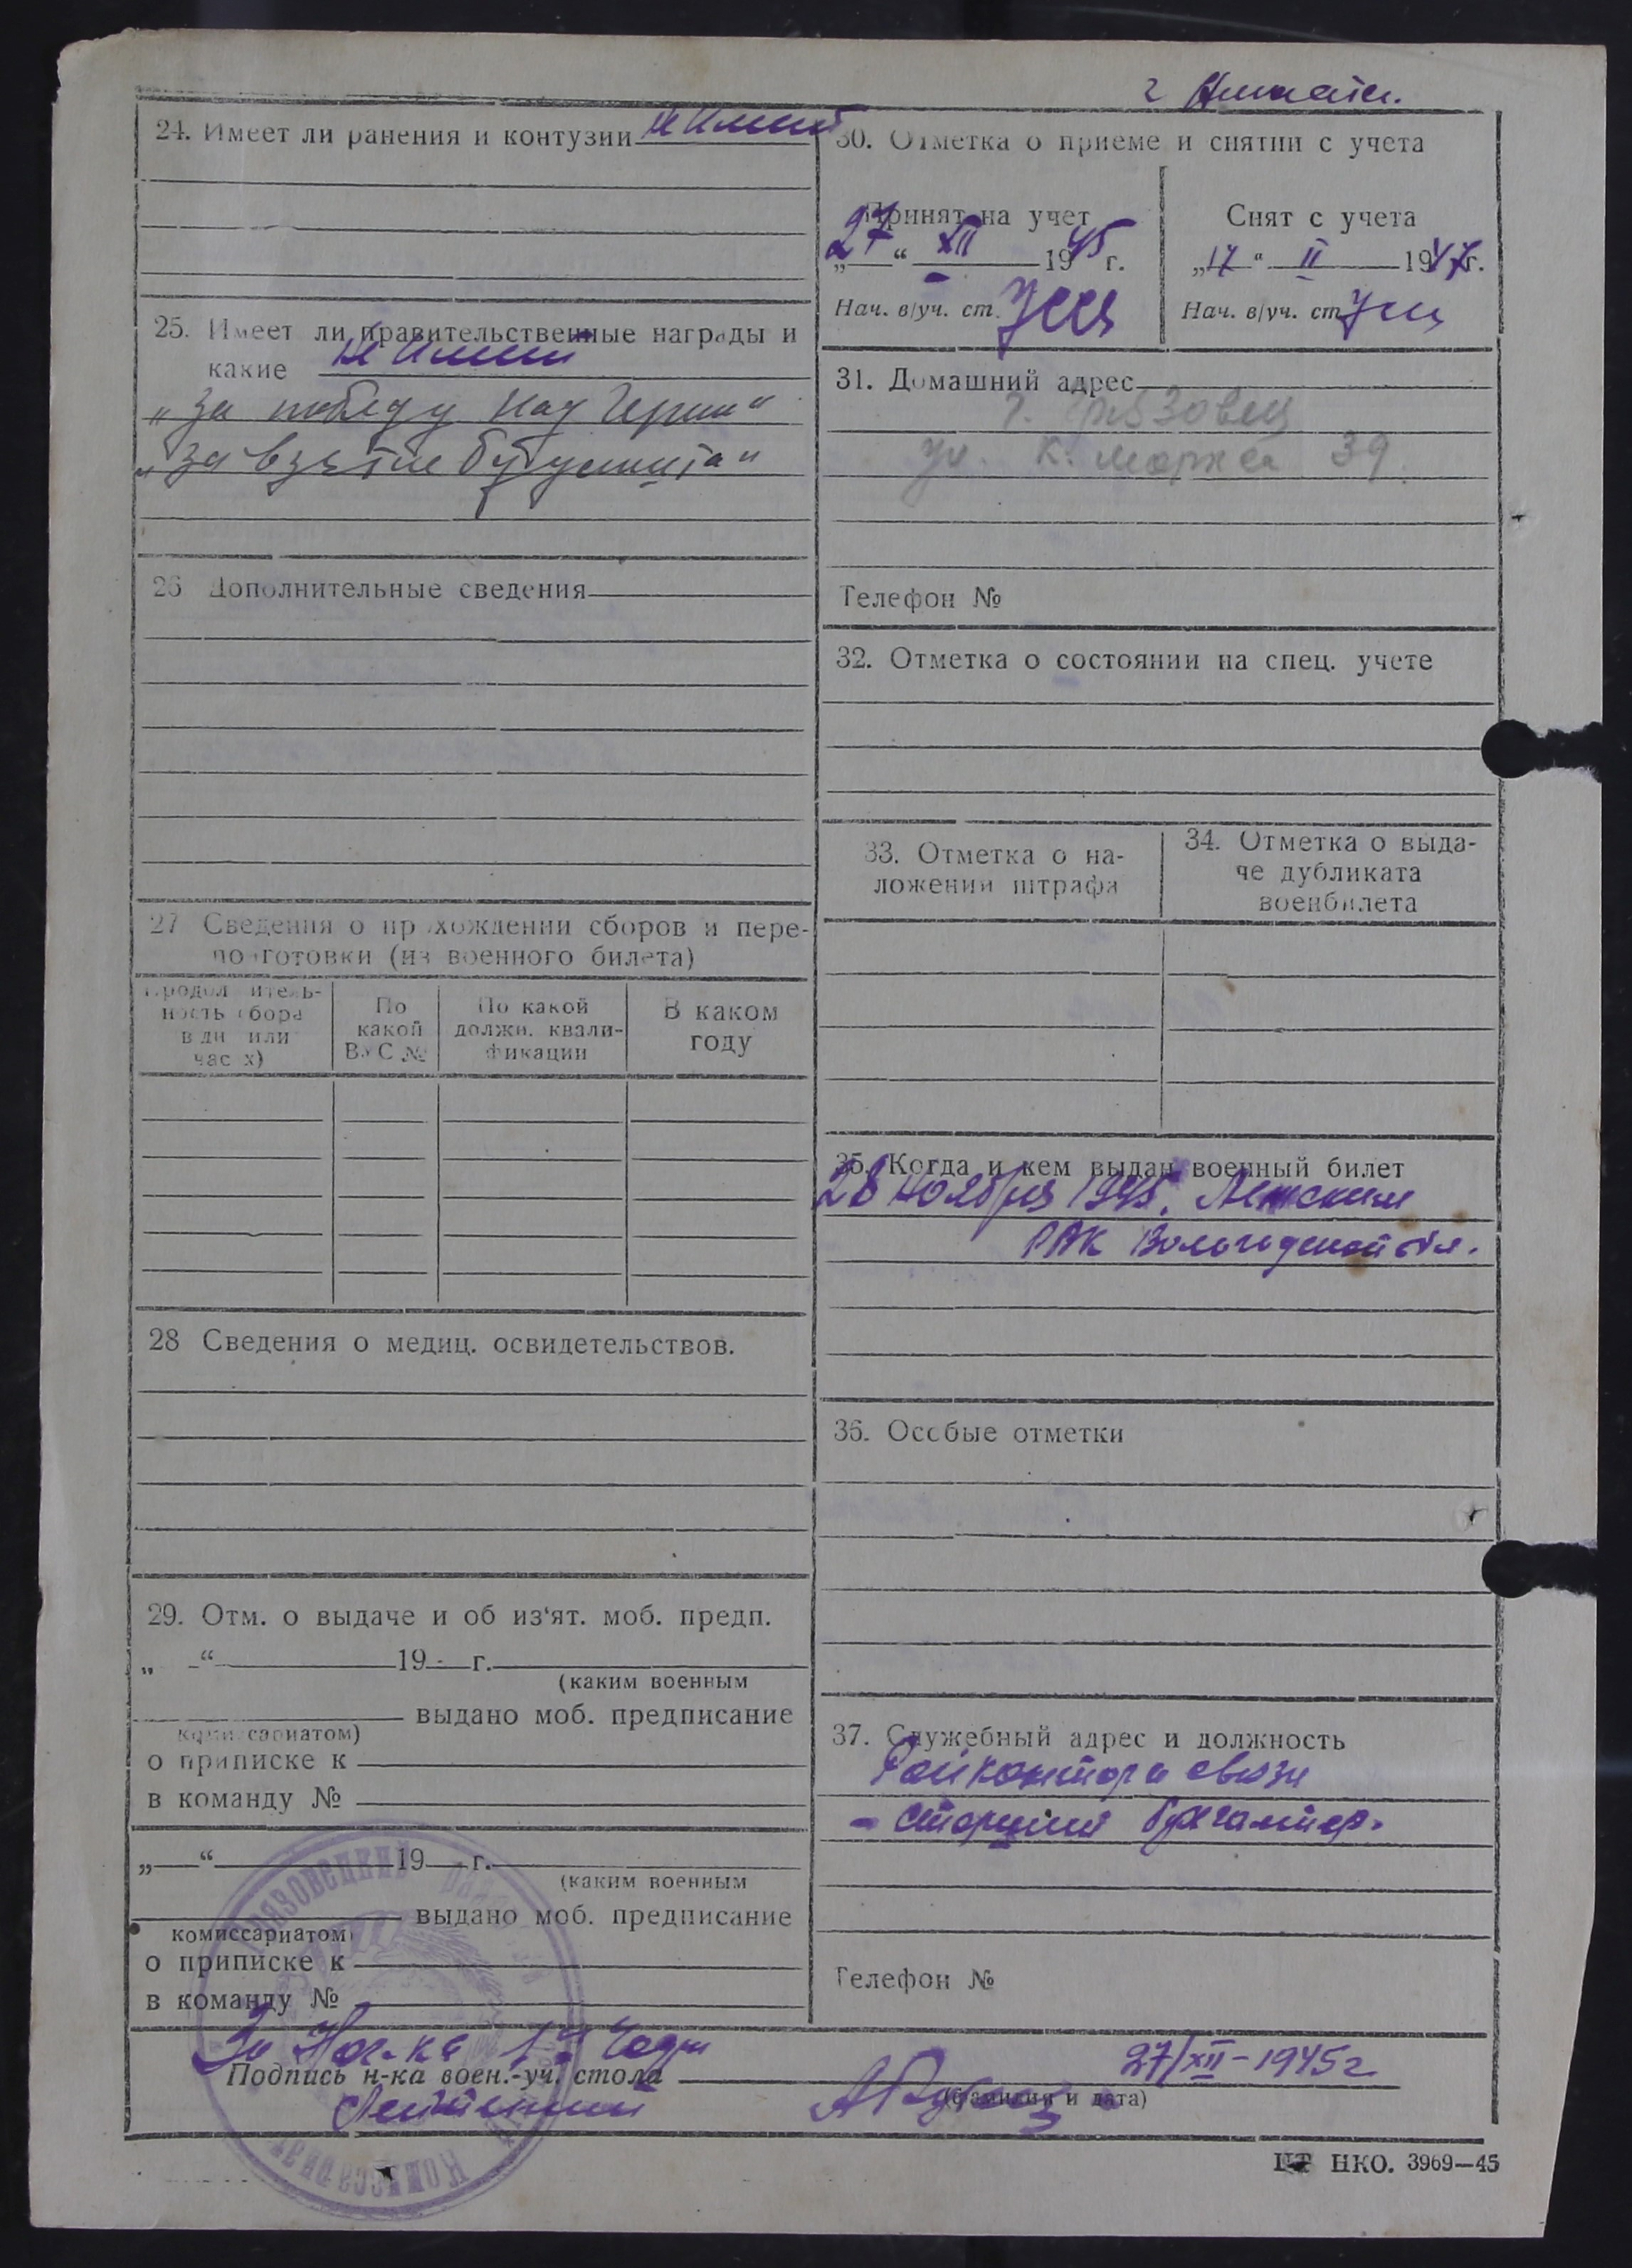 24. Имеет ли ранения и контузии не имеет
25. Имеет ли правительственные награды и
какие не имеет
„За победу над Герман“
„За взятие Будапешта“
26 Дополнительные сведения
27 Сведения о прохождении сборов и пере-
подготовки (из военного билета)
Продолжитель-
ность сбора
в дн или
часах)
По
какой
ВУС №
По какой
должн. квали-
фикации
В каком
году
28 Сведения о медиц. освидетельствов.
29. Отм. о выдаче и об из‘ят. моб. предп.
„ “ 19 г.
(каким военным
выдано моб. предписание
комиссариатом)
о приписке к
в команду №
„ “ 19 г.
(каким военным
выдано моб. предписание
комиссариатом)
о приписке к
в команду №
30. Отметка о приеме и снятии с учета
Принят на учет
„27“ XII 1945 г.
Нач. в/уч. ст.
Снят с учета
„17“ II 1947 г.
Нач. в/уч. ст.
31. Домашний адрес
г. Грязовец
ул. К. Маркса 39.
Телефон №
32. Отметка о состоянии на спец. учете
33. Отметка о на-
ложении штрафа
34. Отметка о выда-
че дубликата
военбилета
35. Когда и кем выдан военный билет
28 ноября 1945.
РВК Вологодской обл.
36. Особые отметки
37. Служебный адрес и должность
Райконтора связи
- старший бухгалтер.
Телефон №
За Нач-ка 1-й Части
Подпись н-ка воен.-уч. стола
27/XII-1945 г
(фамилия и дата)
Лейтенант
Грязовецкий
Комиссариат
НКО. 3969—45